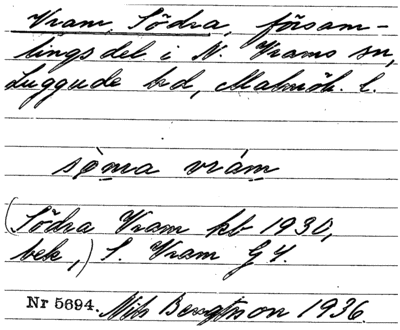 Vram, Södra, försam-
lingsdel i N. Vrams sn,
Luggude hd, Malmöh. l.
sò̱ma vrám̱
(Södra Vram kb 1930,
bek,) S. Vram GY.
Nr 5694. Nils Bengtsson 1936.